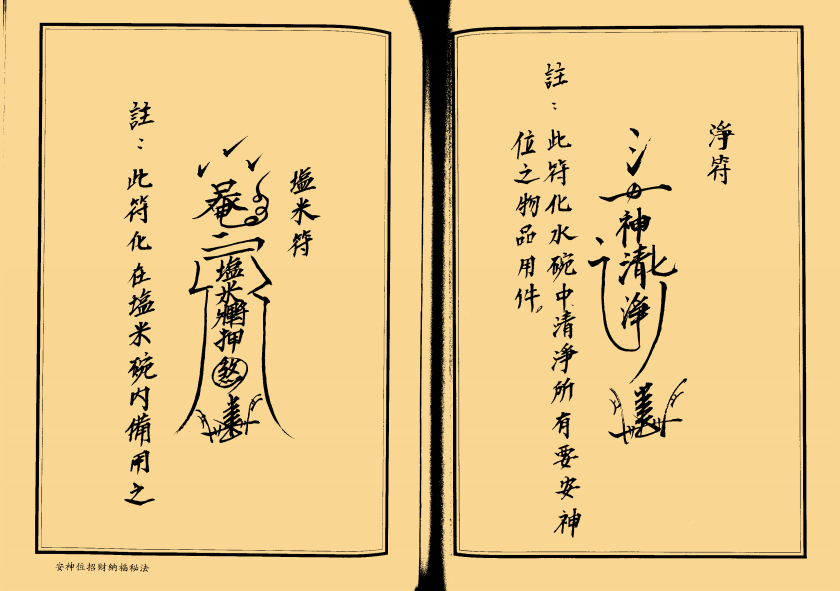 淨符
神清淨
註：此符化水碗中清淨所有要安神
位之物品用件。
塩米符
塩米
押煞
註：此符化在塩米碗內備用之
安神位招財納福秘法